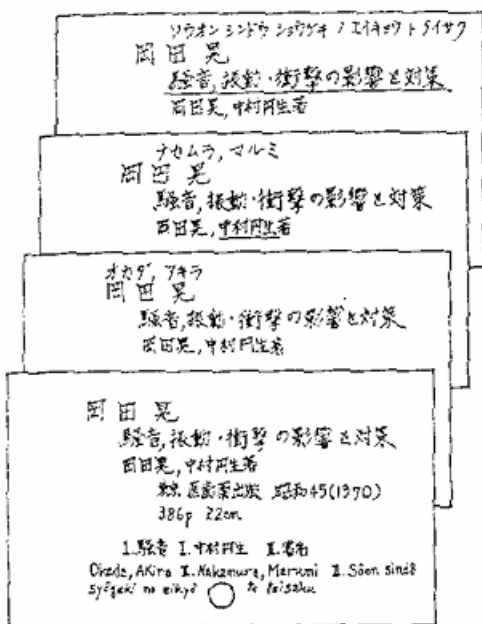 ソウオン シンドウ ショウゲキ ノ エイキョウ ト タイサク
岡田晃
騒音,振動・衝撃の影響と対策
岡田晃,中村円生著
ナカムラ,マルミ
岡田晃
騒音,振動・衝撃の影響と対策
岡田晃,中村円生著
オカダ,アキラ
岡田晃
騒音,振動・衝撃の影響と対策
岡田晃,中村円生著
岡田晃
騒音,振動・衝撃の影響と対策
岡田晃,中村円生著
東京 医歯薬出版 昭和45(1970)
386p 22cm
1.騒音 I.中村円生 II.書名
Okada, Akira I.Nakamura, Marumi II.Sôon sindô
syôgeki no eikyô to taisaku